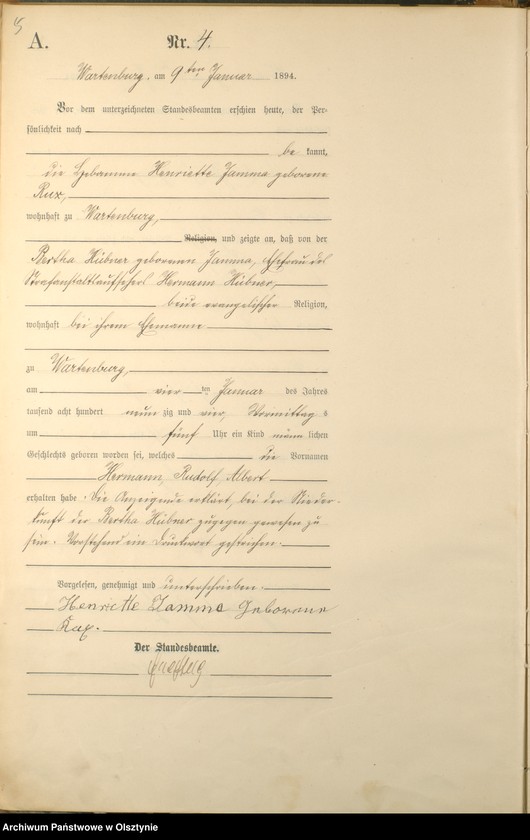 5
A. Nr. 4.
Wartenburg, am 9ten Januar 1894.
Vor dem unterzeichneten Standesbeamten erschien heute, der Per-
sönlichkeit nach
be kannt,
die Hebamme Henriette Jamma geborene
Rux,
wohnhaft zu Wartenburg,
Religion, und zeigte an, daß von der
Bertha Hübner geborenen Jamma, Ehefrau des
Strafanstaltsaufsehers Hermann Hübner,
beide evangelischer Religion,
wohnhaft bei ihrem Ehemanne
zu Wartenburg,
am vier ten Januar des Jahres
tausend acht hundert neun zig und vier, Vormittags
um fünf Uhr ein Kind männ lichen
Geschlechts geboren worden sei, welches die Vornamen
Hermann, Rudolf Albert
erhalten habe. Die Anzeigende erklärt, bei der Nieder-
kunft der Bertha Hübner zugegen gewesen zu
sein. Vorstehend ein Druckwort gestrichen.
Vorgelesen, genehmigt und unterschrieben.
Henriette Jamma Geborene
Der Standesbeamte.
Archiwum Państwowe w Olsztynie